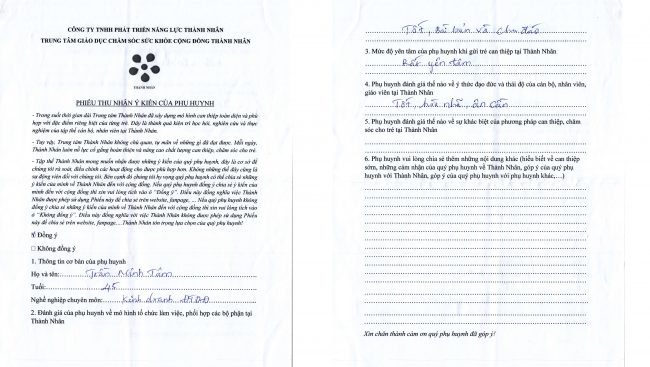 CÔNG TY TNHH PHÁT TRIỂN NĂNG LỰC THÀNH NHÂN
TRUNG TÂM GIÁO DỤC CHĂM SÓC SỨC KHỎE CỘNG ĐỒNG THÀNH NHÂN
THÀNH NHÂN
PHIẾU THU NHẬN Ý KIẾN CỦA PHỤ HUYNH
- Trong suốt thời gian dài Trung tâm Thành Nhân đã xây dựng mô hình can thiệp toàn diện và phù
hợp với đặc điểm riêng biệt của từng trẻ. Đây là thành quả kiên trì học hỏi, nghiên cứu và thực
nghiệm của tập thể cán bộ, nhân viên tại Thành Nhân.
- Tuy vậy, Trung tâm Thành Nhân không chủ quan, tự mãn về những gì đã đạt được. Mỗi ngày,
Thành Nhân luôn nỗ lực cố gắng hoàn thiện và nâng cao chất lượng can thiệp, chăm sóc cho trẻ.
- Tập thể Thành Nhân mong muốn nhận được những ý kiến của quý phụ huynh, đây là cơ sở để
chúng tôi rà soát, điều chỉnh các hoạt động cho được phù hợp hơn. Không những thế đây cũng là
sự động viên đối với chúng tôi. Bên cạnh đó chúng tôi hy vọng quý phụ huynh có thể chia sẻ những
ý kiến của mình về Thành Nhân đến với cộng đồng. Nếu quý phụ huynh đồng ý chia sẻ ý kiến của
mình đến với cộng đồng thì xin vui lòng tích vào ô "Đồng ý". Điều này đồng nghĩa với Thành Nhân
được phép sử dụng Phiếu này để chia sẻ trên website, fanpage, ... Nếu quý phụ huynh không
đồng ý chia sẻ những ý kiến của mình về Thành Nhân đến với cộng đồng thì xin vui lòng tích vào
ô "Không đồng ý". Điều này đồng nghĩa với việc Thành Nhân không được phép sử dụng Phiếu
này để chia sẻ trên website, fanpage,...Thành Nhân tôn trọng lựa chọn của quý phụ huynh!
Đồng ý
Không đồng ý
1. Thông tin cơ bản của phụ huynh
Họ và tên: Trần Minh Tâm
Tuổi: 45
Nghề nghiệp chuyên môn: Kinh doanh
2. Đánh giá của phụ huynh về mô hình tổ chức làm việc, phối hợp các bộ phận tại
Thành Nhân
Tốt, bài bản và chu đáo
3. Mức độ yên tâm của phụ huynh khi gửi trẻ can thiệp tại Thành Nhân
Rất yên tâm
4. Phụ huynh đánh giá thế nào về ý thức đạo đức và thái độ của cán bộ, nhân viên,
giáo viên tại Thành Nhân
Tốt, hòa nhã, ân cần
5. Phụ huynh đánh giá thế nào về sự khác biệt của phương pháp can thiệp, chăm
sóc cho trẻ tại Thành Nhân
6. Phụ huynh vui lòng chia sẻ thêm những nội dung khác (hiểu biết về can thiệp
sớm, những cảm nhận của quý phụ huynh về Thành Nhân, góp ý của quý phụ
huynh với Thành Nhân, góp ý của quý phụ huynh với phụ huynh khác,…)
Xin chân thành cảm ơn quý phụ huynh đã góp ý!